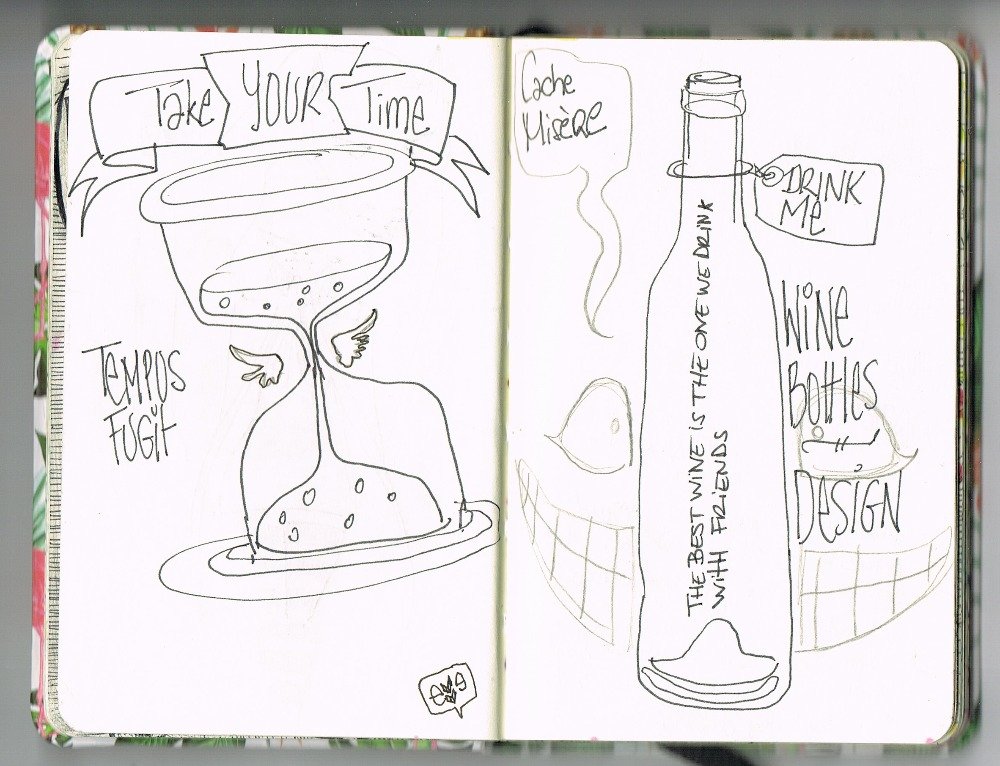 Take YOUR Time
TEMPUS
FUGIT
Cache
Misère
DRINK
ME
THE BEST WINE IS THE ONE WE DRINK
WITH FRIENDS
WINE
BOTTLES
DESIGN